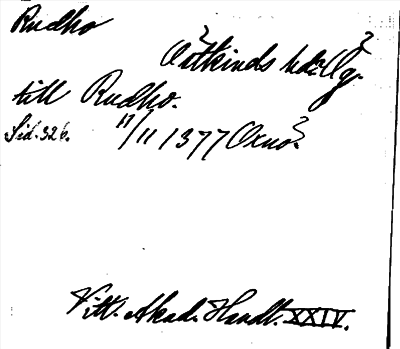 Rudho
Östkinds hd Ög.
till Rudho.
Sid. 326. 11/11 1377 Oxnö.
Vitt. Akad. Handl. XXIV.